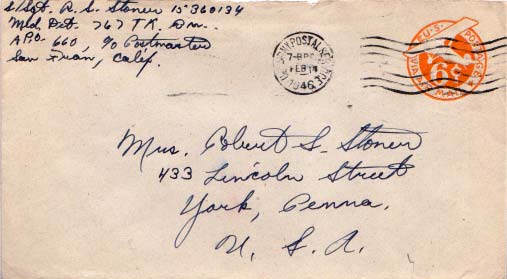 S/Sgt. R. S. Stoner 15360134
Med. Det. 767 TK. Bn.
APO- 660, % Postmaster
San Fran., Calif.
U.S. ARMY POSTAL SERVICE
7-8 PM
FEB 14
1946
U.S. POSTAGE
6¢
VIA AIR MAIL
Mrs. Robert S. Stoner
433 Lincoln Street
York, Penna.
U. S. A.